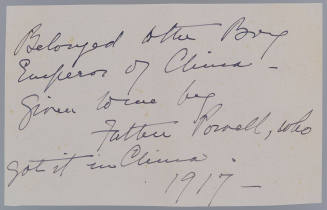 Belonged to the Boy
Emperor of China –
Given to me by
Father Powell, who
got it in China.
1917 –